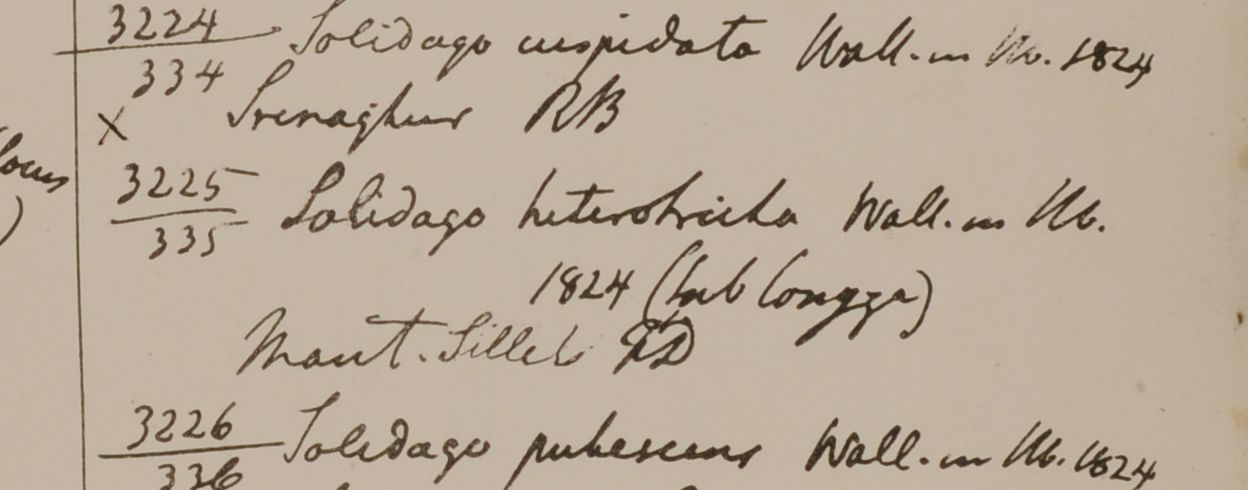 3224 Solidago cuspidata Wall. in Hb. 1824
334
X Srenaghur RB
locus
3225 Solidago heterotricha Wall. in Hb.
)
335
1824 (sub Conyza)
Mont. Sillet FD
3226 Solidago pubescens Wall. in Hb. 1824
336